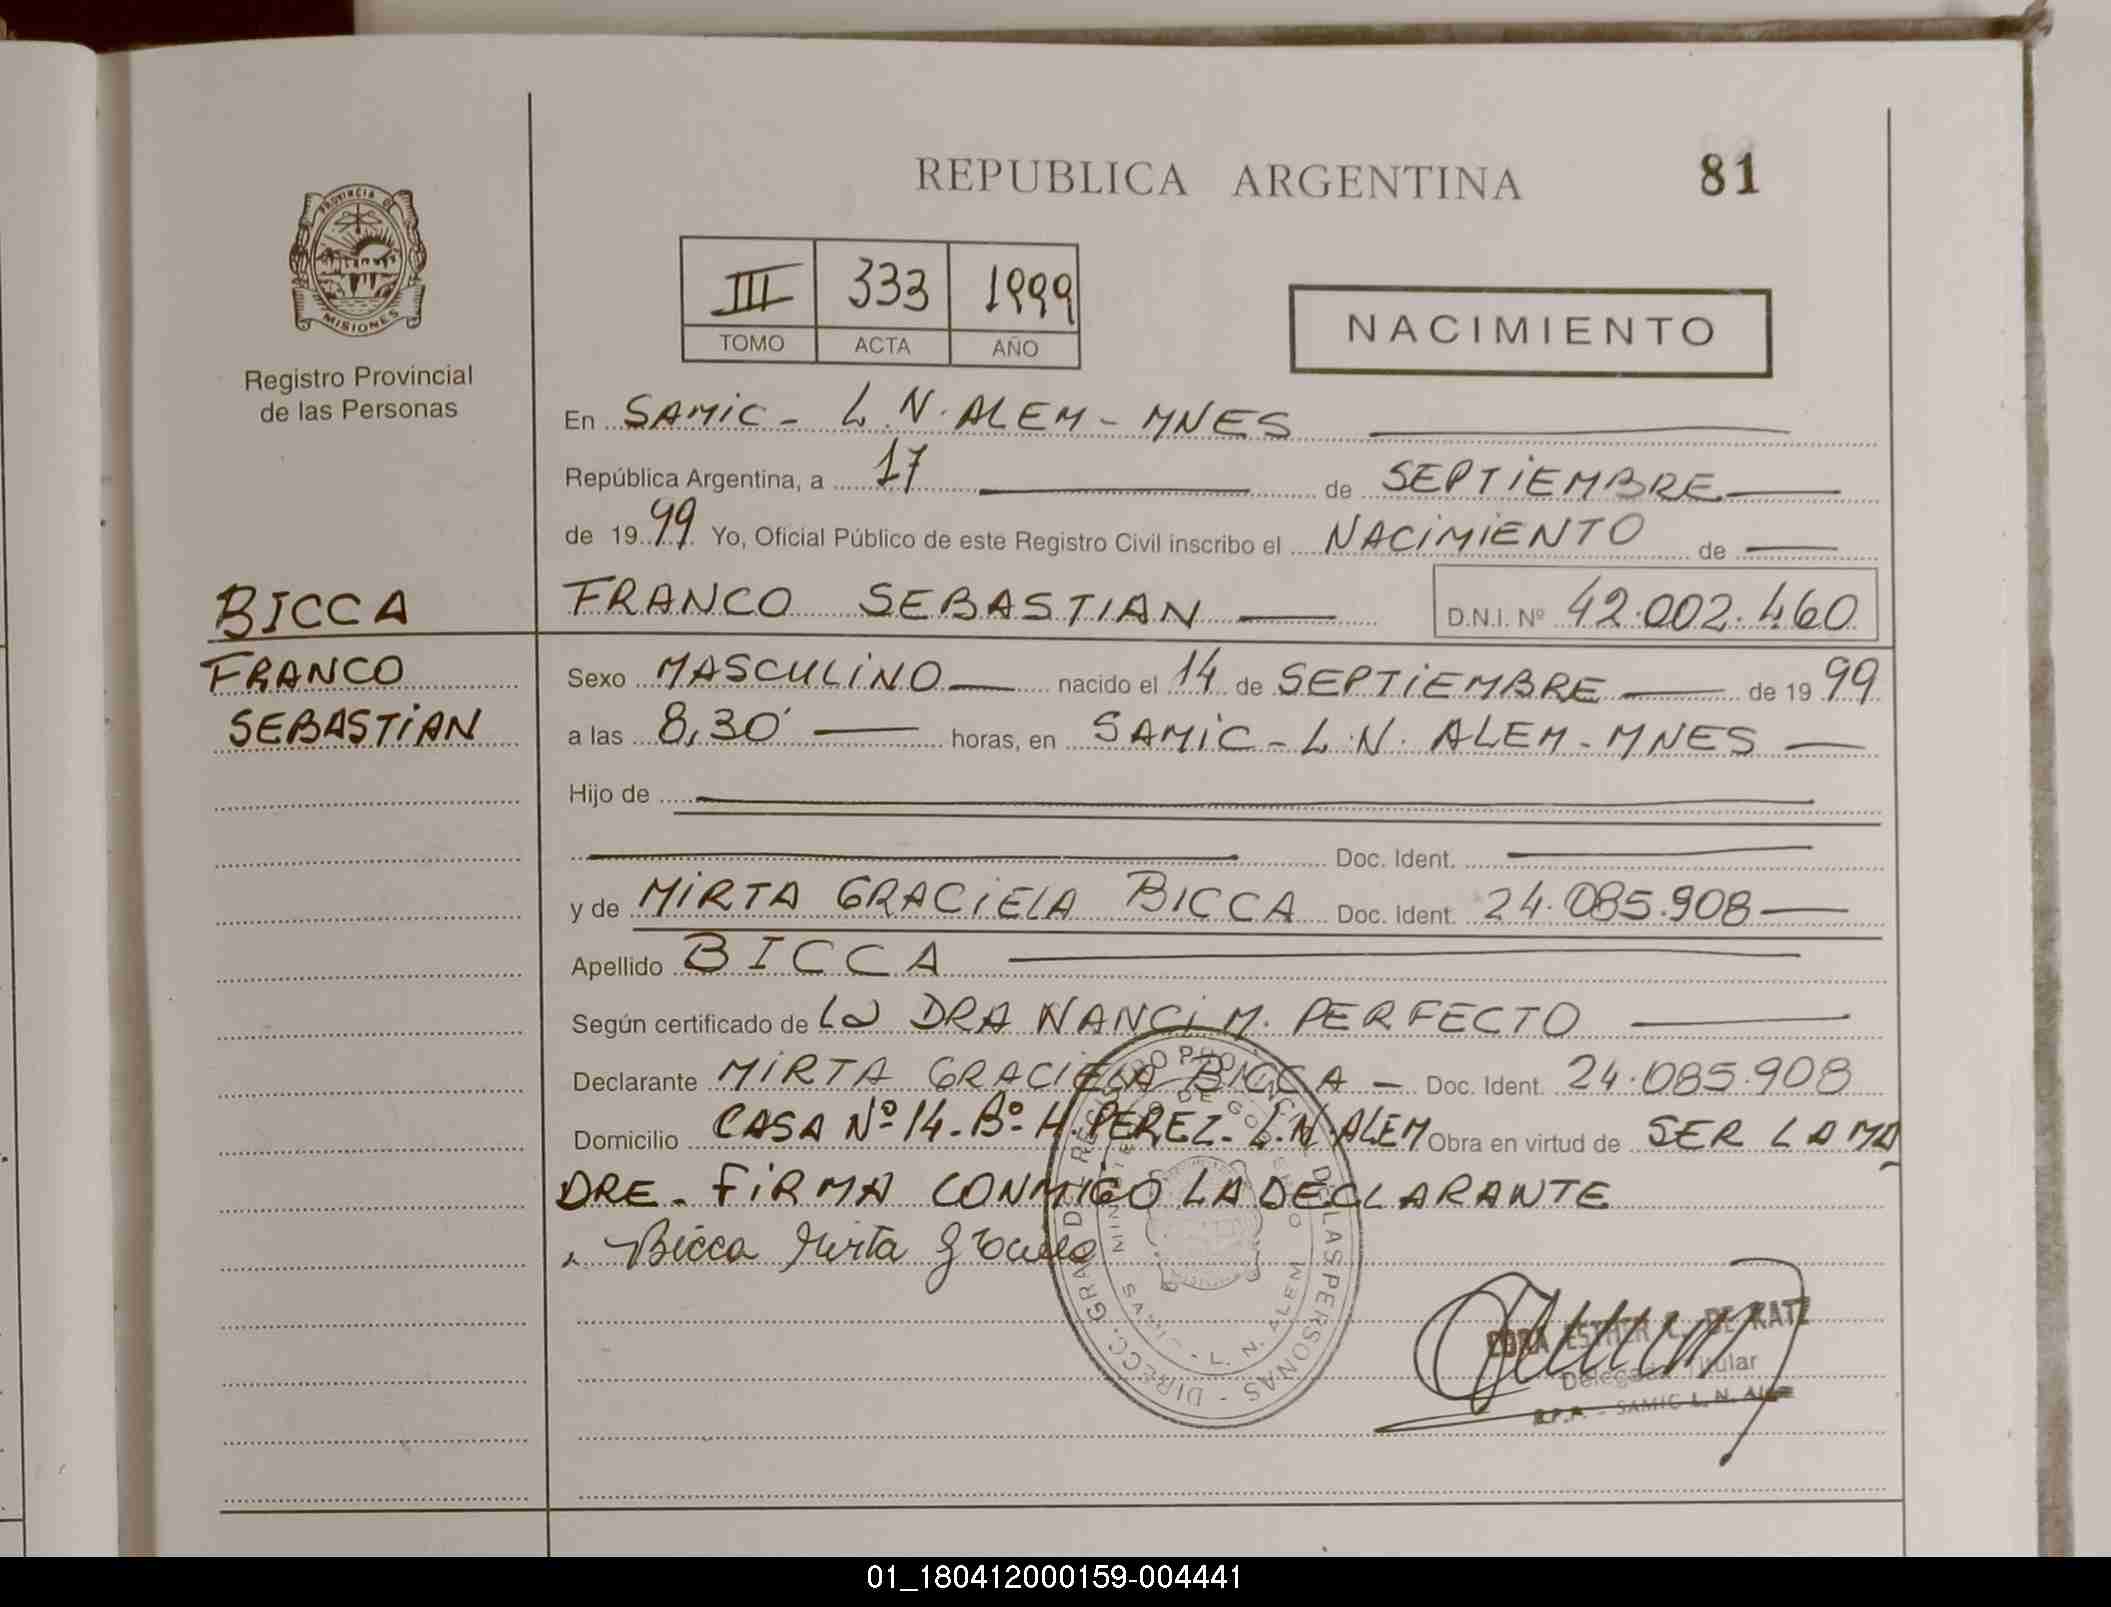 REPUBLICA ARGENTINA
81
PROVINCIA DE MISIONES
Registro Provincial
de las Personas
III 333 1999
TOMO ACTA AÑO
NACIMIENTO
En SAMIC - L.N. ALEM - MNES
República Argentina, a 17 de SEPTIEMBRE
de 1999 Yo, Oficial Público de este Registro Civil inscribo el NACIMIENTO de
BICCA
FRANCO
SEBASTIAN
FRANCO SEBASTIAN D.N.I. Nº 42.002.460
Sexo MASCULINO nacido el 14 de SEPTIEMBRE de 1999
a las 8,30' horas, en SAMIC - L.N. ALEM - MNES
Hijo de
Doc. Ident.
y de MIRTA GRACIELA BICCA Doc. Ident. 24.085.908
Apellido BICCA
Según certificado de La DRA NANCI M. PERFECTO
Declarante MIRTA GRACIELA BICCA - Doc. Ident. 24.085.908
Domicilio CASA Nº 14 - Bº H. PEREZ - L.N. ALEM Obra en virtud de SER LA MA
DRE - FIRMA CONMIGO LA DECLARANTE
Bicca Mirta Graciela
DIRECC. GRAL. DEL REGISTRO PROVINCIAL DE LAS PERSONAS
MINISTERIO DE GOBIERNO
SAMIC - L. N. ALEM
ESTHER C. DE KATZ
Delegada Titular
R.P.P. - SAMIC L. N. ALEM
01_180412000159-004441